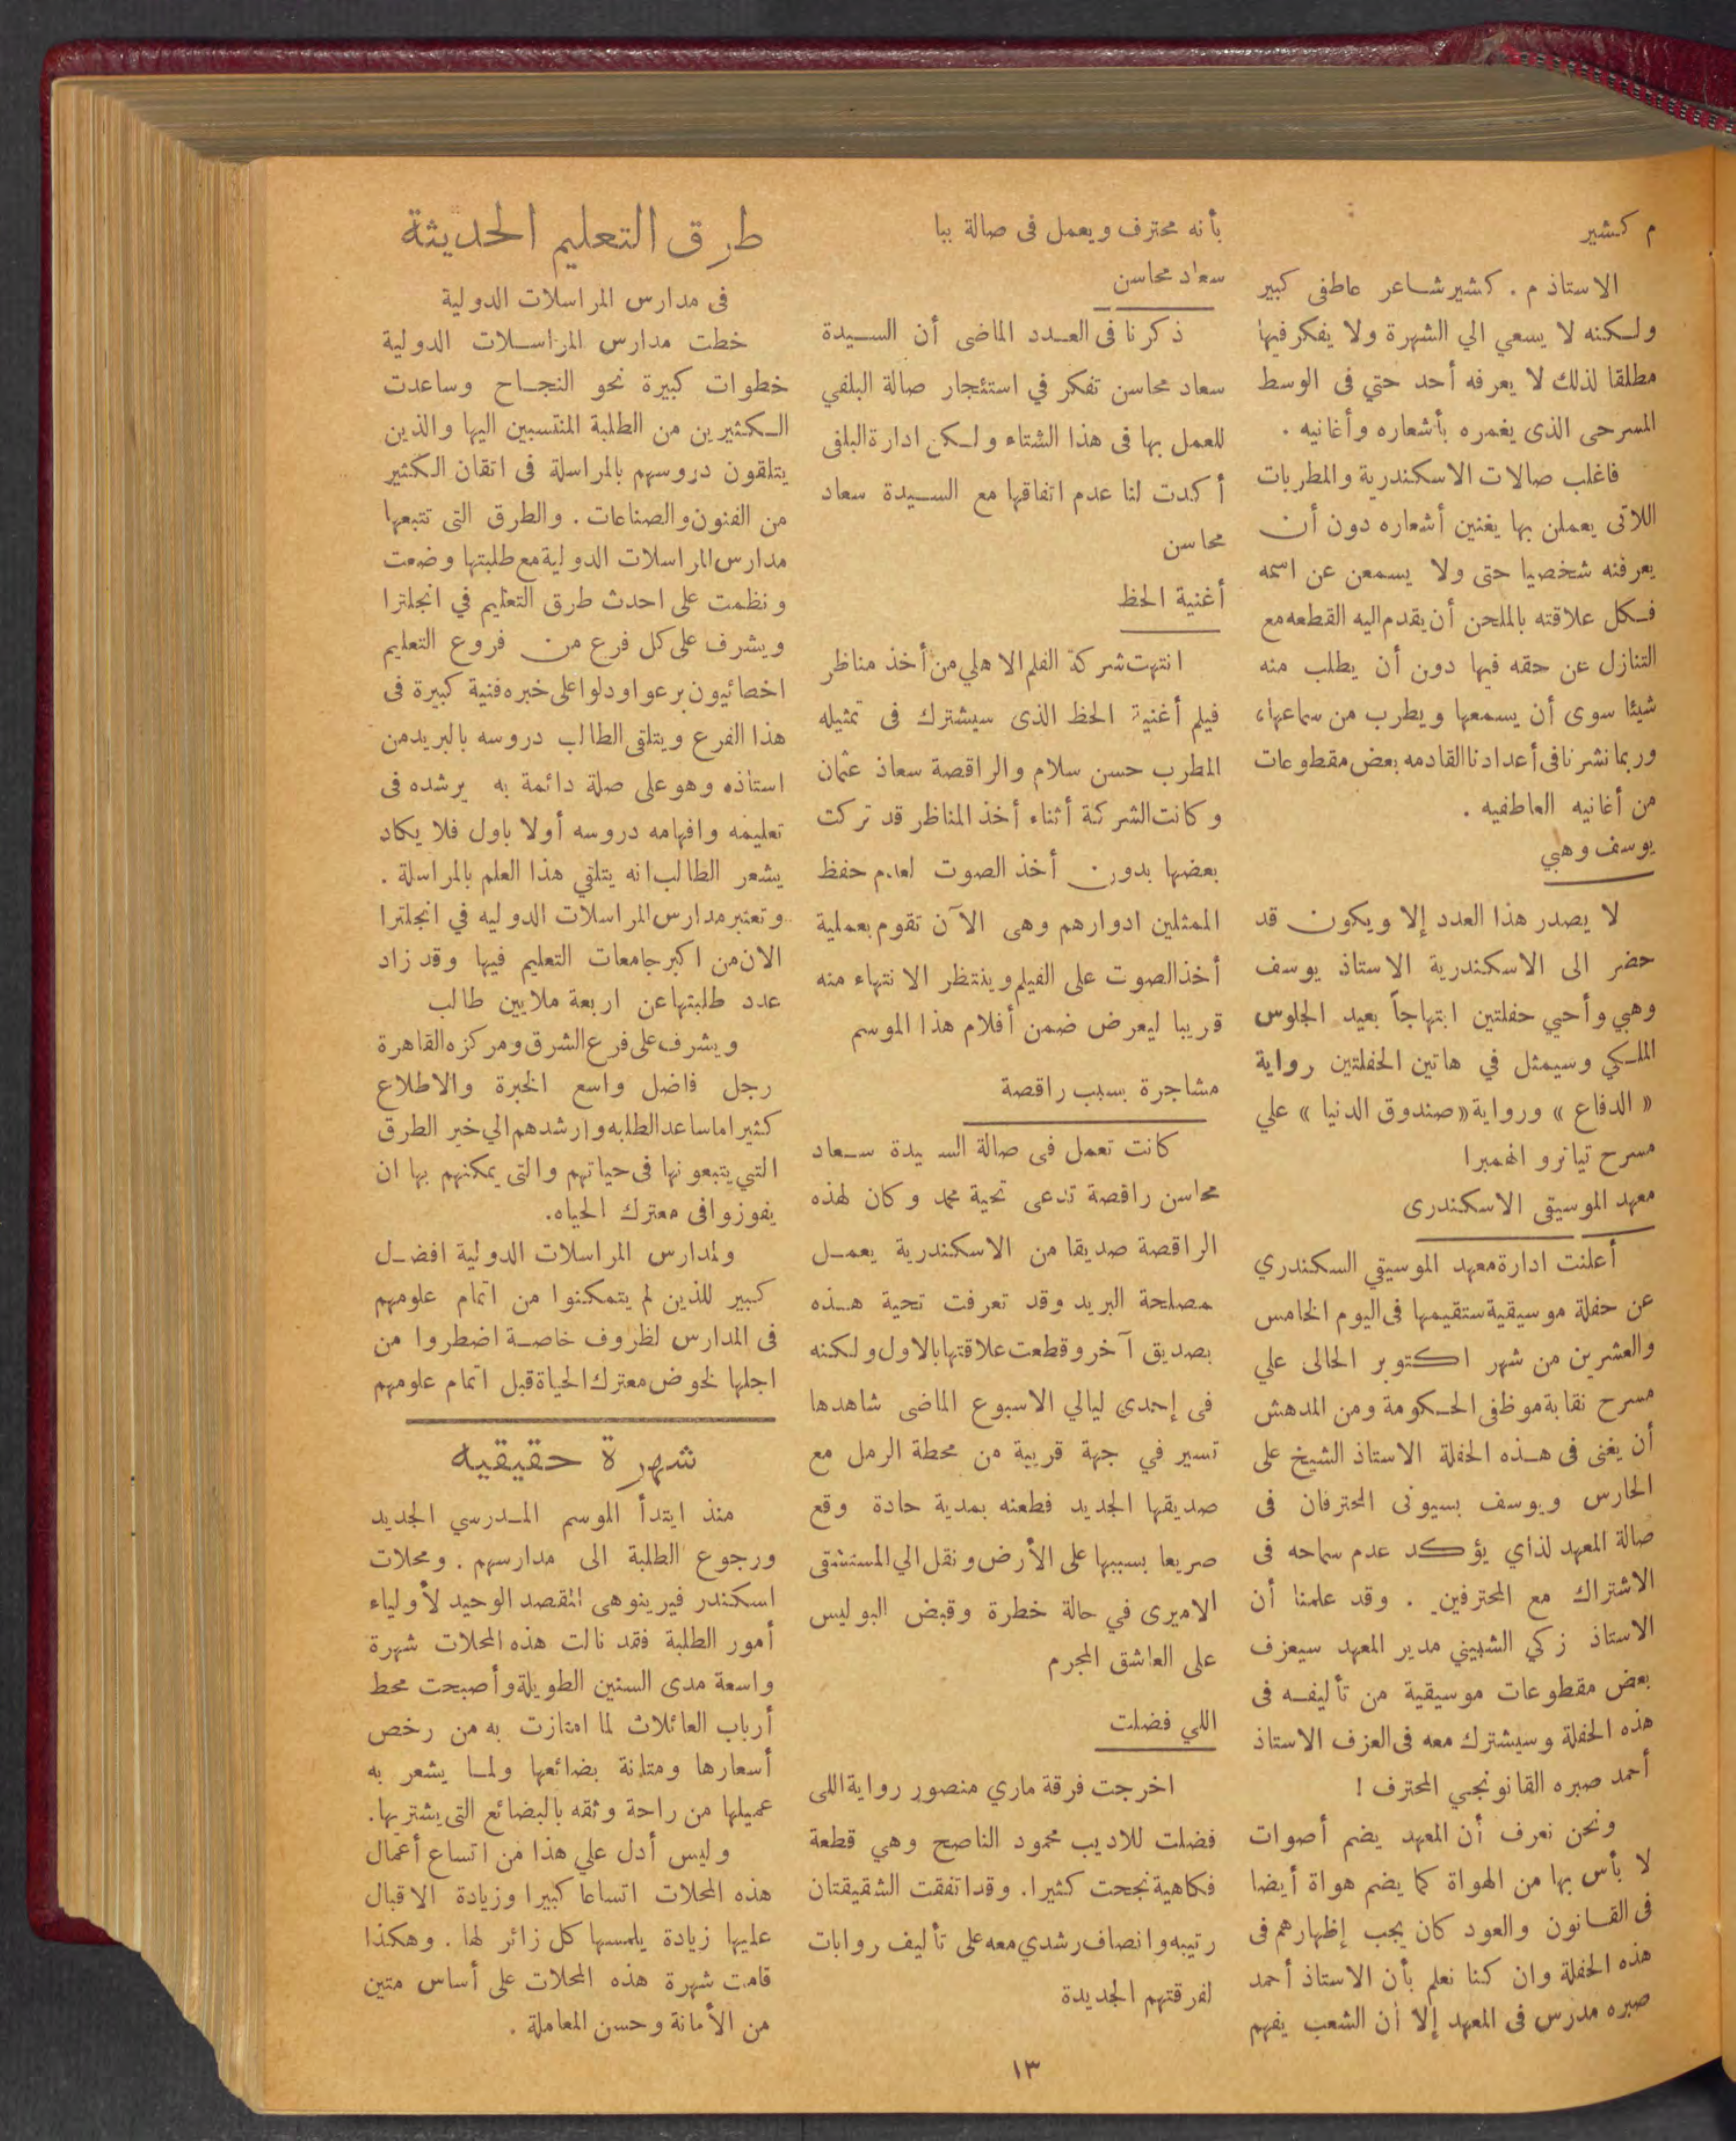 م كشير
الاستاذ م . كشير شاعر عاطفى كبير
ولكنه لا يسعي الي الشهرة ولا يفكر فيها
مطلقا لذلك لا يعرفه أحد حتي فى الوسط
المسرحى الذى يغمره بأشعاره وأغانيه .
فاغلب صالات الاسكندرية والمطربات
اللاتى يعملن بها يغنين أشعاره دون أن
يعرفنه شخصيا حتى ولا يسمعن عن اسمه
فكل علاقته بالملحن أن يقدم اليه القطعه مع
التنازل عن حقه فيها دون أن يطلب منه
شيئا سوى أن يسمعها ويطرب من سماعها،
وربما نشرنا فى أعدادنا القادمه بعض مقطوعات
من أغانيه العاطفيه .
يوسف وهبي
لا يصدر هذا العدد إلا ويكون قد
حضر الى الاسكندرية الاستاذ يوسف
وهبي وأحيي حفلتين ابتهاجاً بعيد الجلوس
الملكي وسيمثل في هاتين الحفلتين رواية
« الدفاع » ورواية « صندوق الدنيا » علي
مسرح تياترو الهمبرا
معهد الموسيقى الاسكندرى
أعلنت ادارة معهد الموسيقي السكندري
عن حفلة موسيقية ستقيمها فى اليوم الخامس
والعشرين من شهر اكتوبر الحالى علي
مسرح نقابة موظفى الحكومة ومن المدهش
أن يغنى فى هذه الحفلة الاستاذ الشيخ على
الحارس ويوسف بسيونى المحترفان فى
صالة المعهد لذاي يؤكد عدم سماحه فى
الاشتراك مع المحترفين . وقد علمنا أن
الاستاذ زكي الشبيني مدير المعهد سيعزف
بعض مقطوعات موسيقية من تأليفه فى
هذه الحفلة وسيشترك معه فى العزف الاستاذ
أحمد صبره القانونجي المحترف !
ونحن نعرف أن المعهد يضم أصوات
لا بأس بها من الهواة كما يضم هواة أيضا
فى القانون والعود كان يجب إظهارهم فى
هذه الحفلة وان كنا نعلم بأن الاستاذ أحمد
صبره مدرس فى المعهد إلا أن الشعب يفهم
بأنه محترف ويعمل فى صالة ببا
سعاد محاسن
ذكرنا فى العدد الماضى أن السيدة
سعاد محاسن تفكر في استئجار صالة البلفي
للعمل بها فى هذا الشتاء ولكن ادارة البلفى
أكدت لنا عدم اتفاقها مع السيدة سعاد
محاسن
أغنية الحظ
انتهت شركة الفلم الاهلي من أخذ مناظر
فيلم أغنية الحظ الذى سيشترك فى تمثيله
المطرب حسن سلام والراقصة سعاذ عثمان
وكانت الشركة أثناء أخذ المناظر قد تركت
بعضها بدون أخذ الصوت لعدم حفظ
الممثلين ادوارهم وهى الآن تقوم بعملية
أخذ الصوت على الفيلم وينتظر الانتهاء منه
قريبا ليعرض ضمن أفلام هذا الموسم
مشاجرة بسبب راقصة
كانت تعمل فى صالة السيدة سعاد
محاسن راقصة تدعى تحية محمد وكان لهذه
الراقصة صديقا من الاسكندرية يعمل
بمصلحة البريد وقد تعرفت تحية هذه
بصديق آخر وقطعت علاقتها بالاول ولكنه
فى إحدى ليالي الاسبوع الماضى شاهدها
تسير في جهة قريبة من محطة الرمل مع
صديقها الجديد فطعنه بمدية حادة وقع
صريعا بسببها على الأرض ونقل الي المستشقى
الاميرى في حالة خطرة وقبض البوليس
على العاشق المجرم
اللي فضلت
اخرجت فرقة ماري منصور رواية اللى
فضلت للاديب محمود الناصح وهي قطعة
فكاهية نجحت كثيرا. وقد اتفقت الشقيقتان
رتيبه وانصاف رشدي معه على تأليف روايات
لفرقتهم الجديدة
طرق التعليم الحديثة
فى مدارس المراسلات الدولية
خطت مدارس المراسلات الدولية
خطوات كبيرة نحو النجاح وساعدت
الكثيرين من الطلبة المنتسبين اليها والذين
يتلقون دروسهم بالمراسلة فى اتقان الكثير
من الفنون والصناعات . والطرق التى تتبعها
مدارس المراسلات الدولية مع طلبتها وضعت
ونظمت على احدث طرق التعليم في انجلترا
ويشرف على كل فرع من فروع التعليم
اخصائيون برعوا ودلوا على خبره فنية كبيرة فى
هذا الفرع ويتلقى الطالب دروسه بالبريد من
استاذه وهو على صلة دائمة به يرشده فى
تعليمه وافهامه دروسه أولا باول فلا يكاد
يشعر الطالب انه يتلقي هذا العلم بالمراسلة .
وتعتبر مدارس المراسلات الدوليه في انجلترا
الان من اكبر جامعات التعليم فيها وقد زاد
عدد طلبتها عن اربعة ملايين طالب
ويشرف على فرع الشرق ومركزه القاهرة
رجل فاضل واسع الخبرة والاطلاع
كثيرا ما ساعد الطلبه وارشدهم الي خير الطرق
التي يتبعونها فى حياتهم والتى يمكنهم بها ان
يفوزوا فى معترك الحياه.
ولمدارس المراسلات الدولية افضل
كبير للذين لم يتمكنوا من اتمام علومهم
فى المدارس لظروف خاصة اضطروا من
اجلها لخوض معترك الحياة قبل اتمام علومهم
شهرة حقيقيه
منذ ابتدأ الموسم المدرسي الجديد
ورجوع الطلبة الى مدارسهم . ومحلات
اسكندر فيرينو هى المقصد الوحيد لأولياء
أمور الطلبة فقد نالت هذه المحلات شهرة
واسعة مدى السنين الطويلة وأصبحت محط
أرباب العائلات لما امتازت به من رخص
أسعارها ومتانة بضائعها ولما يشعر به
عميلها من راحة وثقه بالبضائع التى يشتريها.
وليس أدل علي هذا من اتساع أعمال
هذه المحلات اتساعا كبيرا وزيادة الاقبال
عليها زيادة يلمسها كل زائر لها . وهكذا
قامت شهرة هذه المحلات على أساس متين
من الأمانة وحسن المعاملة .
١٣